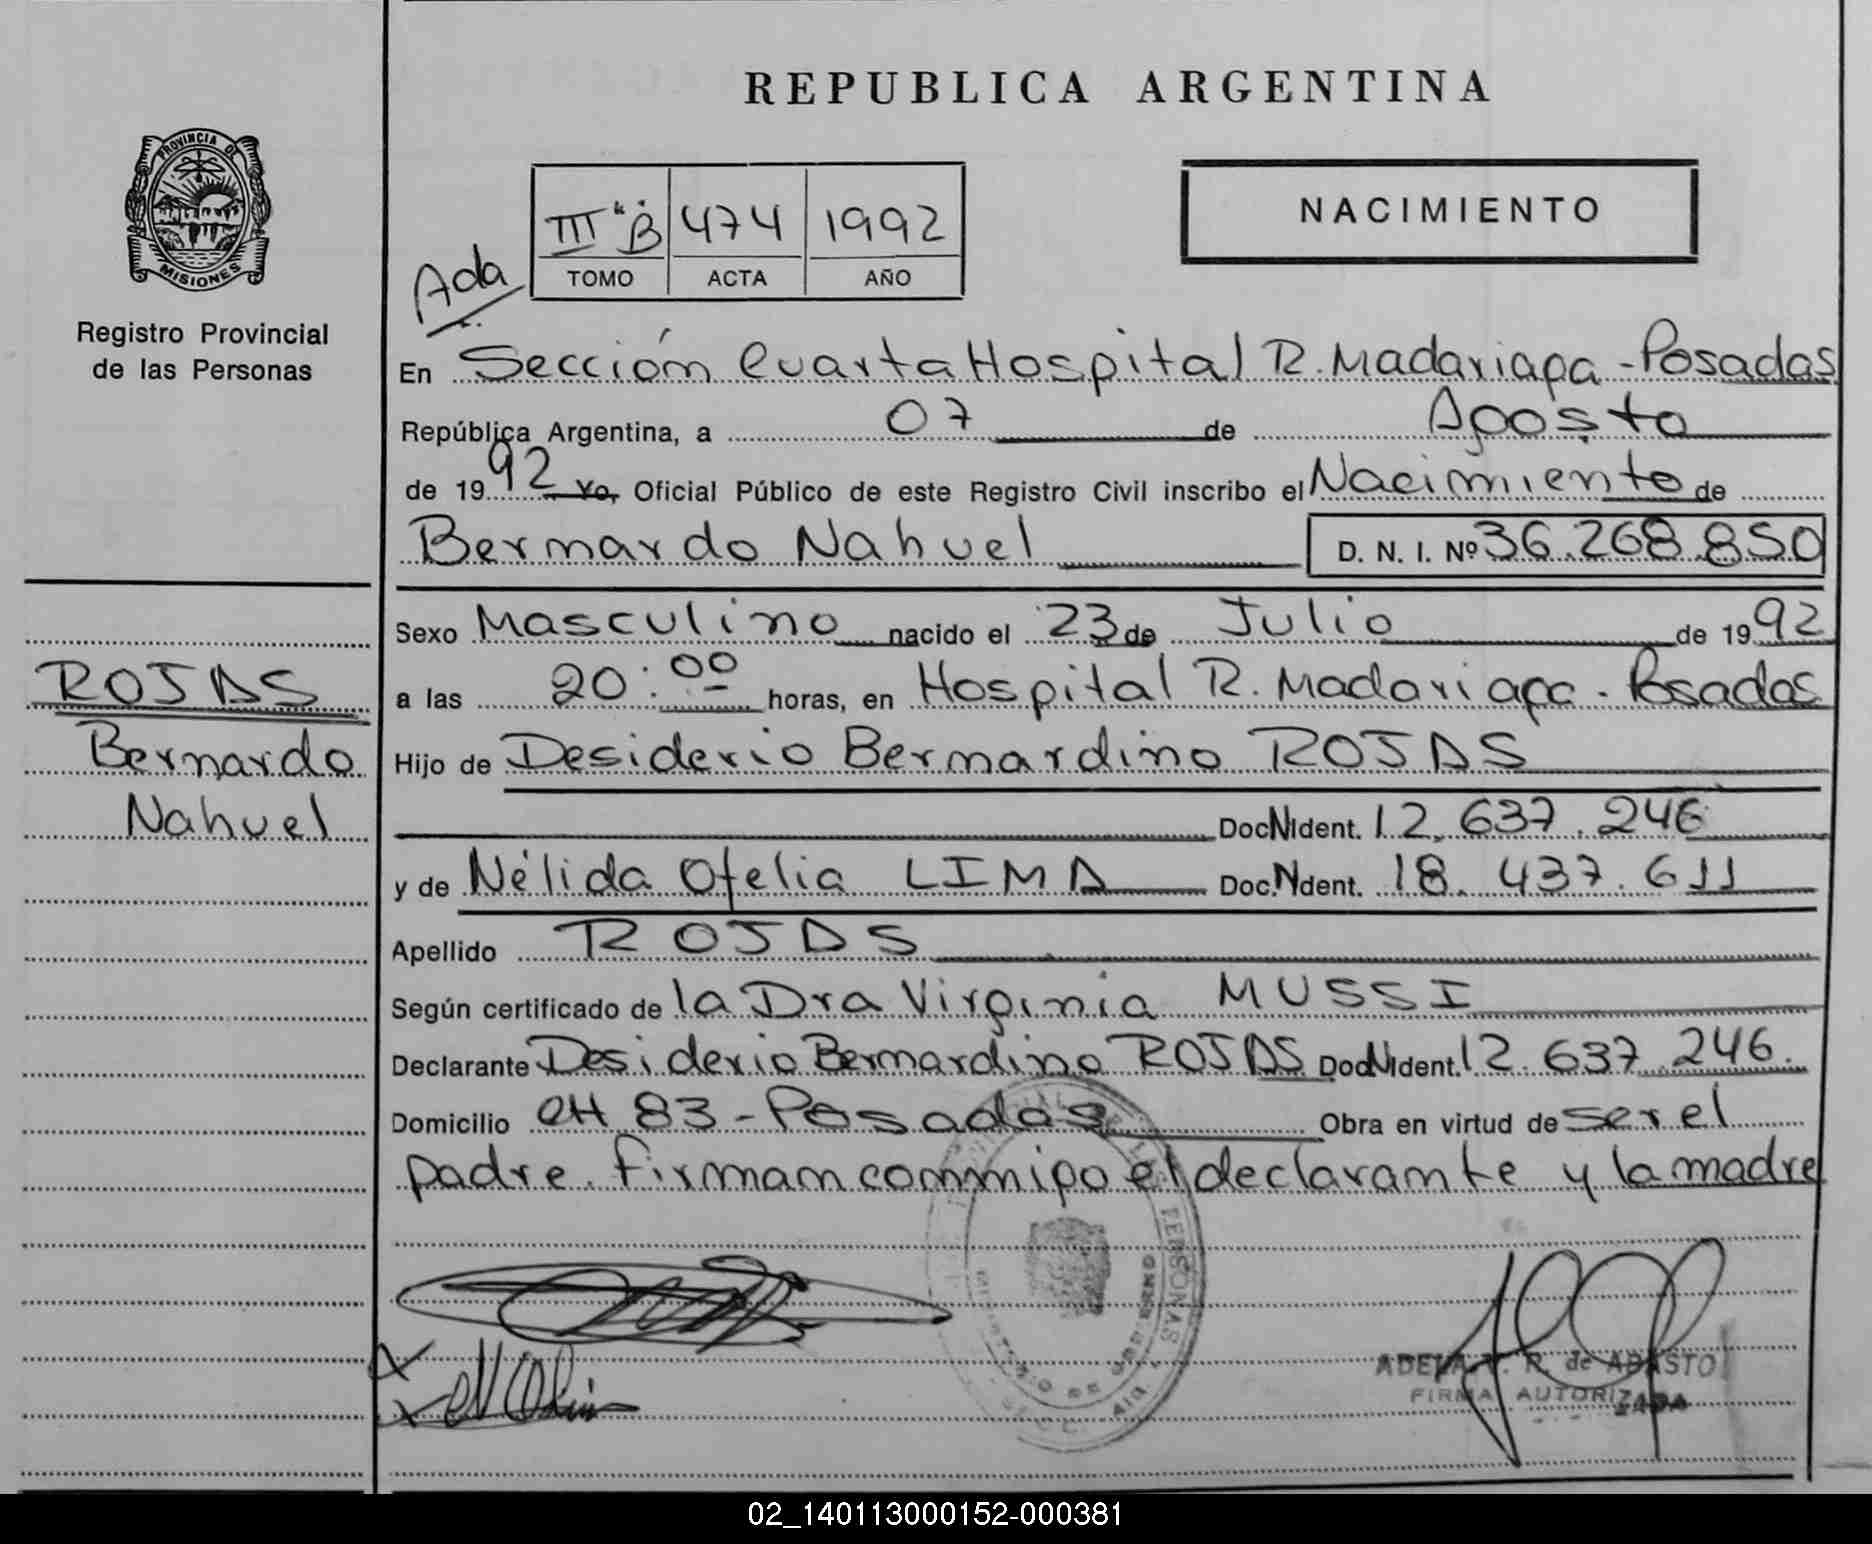 REPUBLICA ARGENTINA
PROVINCIA DE MISIONES
Registro Provincial
de las Personas
III "B" 474 1992
TOMO ACTA AÑO
NACIMIENTO
Ada
En Sección Cuarta Hospital R. Madariaga - Posadas
República Argentina, a 07 de Agosto
de 1992 Yo, Oficial Público de este Registro Civil inscribo el Nacimiento de
Bernardo Nahuel D. N. I. Nº 36.268.850
Sexo Masculino nacido el 23 de Julio de 1992
a las 20:00 horas, en Hospital R. Madariaga - Posadas
Hijo de Desiderio Bernardino ROJAS
Doc N Ident. 12.637.246
y de Nélida Ofelia LIMA Doc. N dent. 18.437.611
Apellido ROJAS
Según certificado de la Dra Virginia MUSSI
Declarante Desiderio Bernardino ROJAS Doc N Ident. 12.637.246.
Domicilio CH 83 - Posadas Obra en virtud de ser el
padre. Firman conmigo el declarante y la madre
ROJAS
Bernardo
Nahuel
PERSONAS
MINISTERIO DE GOBIERNO
R. de ABASTO
FIRMA AUTORIZADA
02_140113000152-000381